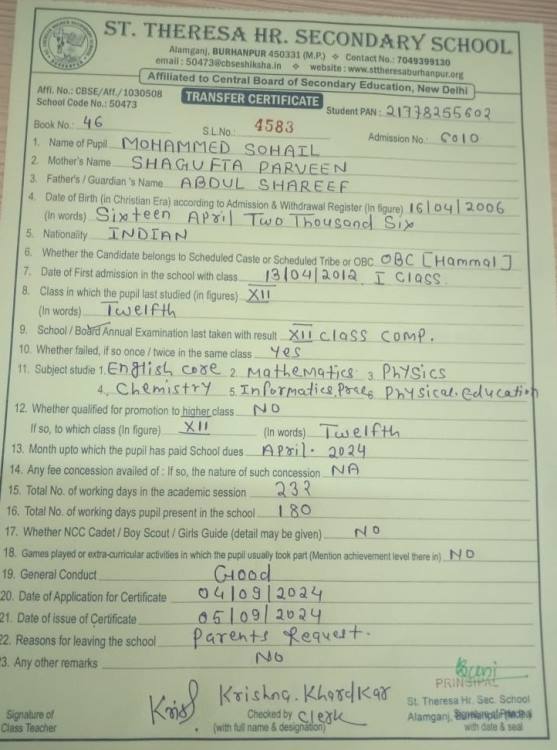 ST. THERESA HR. SECONDARY SCHOOL
Alamganj, BURHANPUR 450331 (M.P.) ❖ Contact No.: 7049399130
email : 50473@cbseshiksha.in ❖ website : www.sttheresaburhanpur.org
Affiliated to Central Board of Secondary Education, New Delhi
Affi. No.: CBSE/Aff./1030508
School Code No.: 50473
TRANSFER CERTIFICATE
Student PAN : 21778255602
Book No.: 46 S.L.No.: 4583 Admission No.: 6010
1. Name of Pupil MOHAMMED SOHAIL
2. Mother's Name SHAGUFTA PARVEEN
3. Father's / Guardian 's Name ABDUL SHAREEF
4. Date of Birth (in Christian Era) according to Admission & Withdrawal Register (In figure) 16/04/2006
(In words) Sixteen April Two Thousand Six
5. Nationality INDIAN
6. Whether the Candidate belongs to Scheduled Caste or Scheduled Tribe or OBC OBC [Hammal]
7. Date of First admission in the school with class 13/04/2012 I Class
8. Class in which the pupil last studied (in figures) XII
(In words) Twelfth
9. School / Board Annual Examination last taken with result XII class comp.
10. Whether failed, if so once / twice in the same class yes
11. Subject studie 1. English core 2. Mathematics 3. Physics
4. Chemistry 5. Informatics. Prac 6 Physical. education
12. Whether qualified for promotion to higher class NO
If so, to which class (In figure) XII (In words) Twelfth
13. Month upto which the pupil has paid School dues April. 2024
14. Any fee concession availed of : If so, the nature of such concession NA
15. Total No. of working days in the academic session 232
16. Total No. of working days pupil present in the school 180
17. Whether NCC Cadet / Boy Scout / Girls Guide (detail may be given) NO
18. Games played or extra-curricular activities in which the pupil usually took part (Mention achievement level there in) NO
19. General Conduct Good
20. Date of Application for Certificate 04/09/2024
21. Date of issue of Certificate 05/09/2024
22. Reasons for leaving the school Parents Request.
3. Any other remarks No
PRINCIPAL
Krishna. Khardkar
St. Theresa Hr. Sec. School
Signature of Checked by Clerk Alamganj,
Class Teacher (with full name & designation) with date & seal